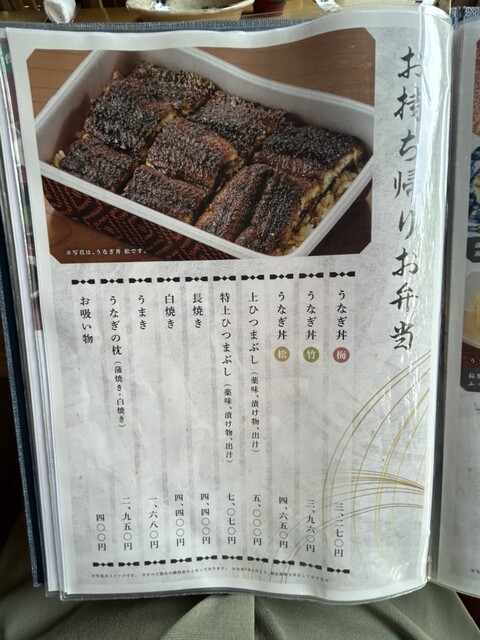 お持ち帰りお弁当
※写真は、うなぎ丼 松です。
うなぎ丼 梅 三、二七〇円
うなぎ丼 竹 三、九六〇円
うなぎ丼 松 四、六五〇円
上ひつまぶし（薬味、漬け物、出汁） 五、〇〇〇円
特上ひつまぶし（薬味、漬け物、出汁） 七、〇七〇円
長焼き 四、四〇〇円
白焼き 四、四〇〇円
うまき 一、六八〇円
うなぎの枕（蒲焼き・白焼き） 二、九五〇円
お吸い物 四〇〇円